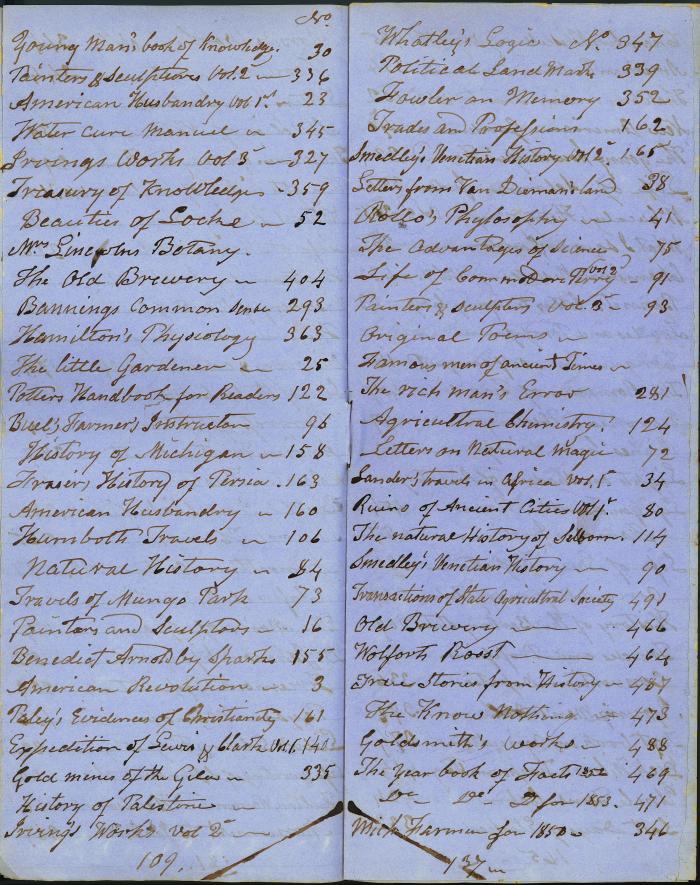 No.
Young Man's book of Knowledge. 30
Painters & Sculptores Vol. 2 336
American Husbandry Vol 1st 23
Water Cure Manuel 345
Irvings Works Vol 3 327
Treasury of Knowledge 359
Beauties of Locke 52
Mrs Lincolns Botany.
The Old Brewery 404
Bannings Common Sense 293
Hamilton's Physiology 363
The little Gardener 25
Potters Handbook for Readers 122
Buel's Farmer's Instructor 96
History of Michigan 158
Frasier's History of Persia. 163
American Husbandry 160
Humbolt Travels 106
Natural History 84
Travels of Mungo Park 73
Painters and Sculptors 16
Benedict Arnold by Sparks 155
American Revolution 3
Paley's Evidences of Christianity 161
Expedition of Lewis & Clark Vol. 1. 140
Gold mines of the Gila 335
History of Palestine
Irving's Works Vol 2
109.
Whatley's Logic No. 347
Political Land Mark 339
Fowler on Memory 352
Trades and Professions 162
Smedley's Venetian History Vol 2 165
Letters from Van Dieman's land 38
Rollo's Phylosophy 41
The Advantages of Science 75
Life of Commodore Perry Vol 2 91
Painters & Sculpters Vol. 3 93
Original Poems
Famous men of ancient Times
The rich man's Error 281
Agricultral Chemistry. 124
Letters on Natural Magic 72
Lander's travels in Africa Vol. 1. 34
Ruins of Ancient Cities Vol 1. 80
The natural History of Selborn. 114
Smedley's Venetian History 90
Transactions of State Agricultral Society 491
Old Brewery 466
Wolforts Roost 464
True Stories from History 487
The Know Nothing 473
Goldsmith's Works 488
The Year book of Facts 1852 469
Do Do D for 1853. 471
Mich Farmer for 1850 346
137